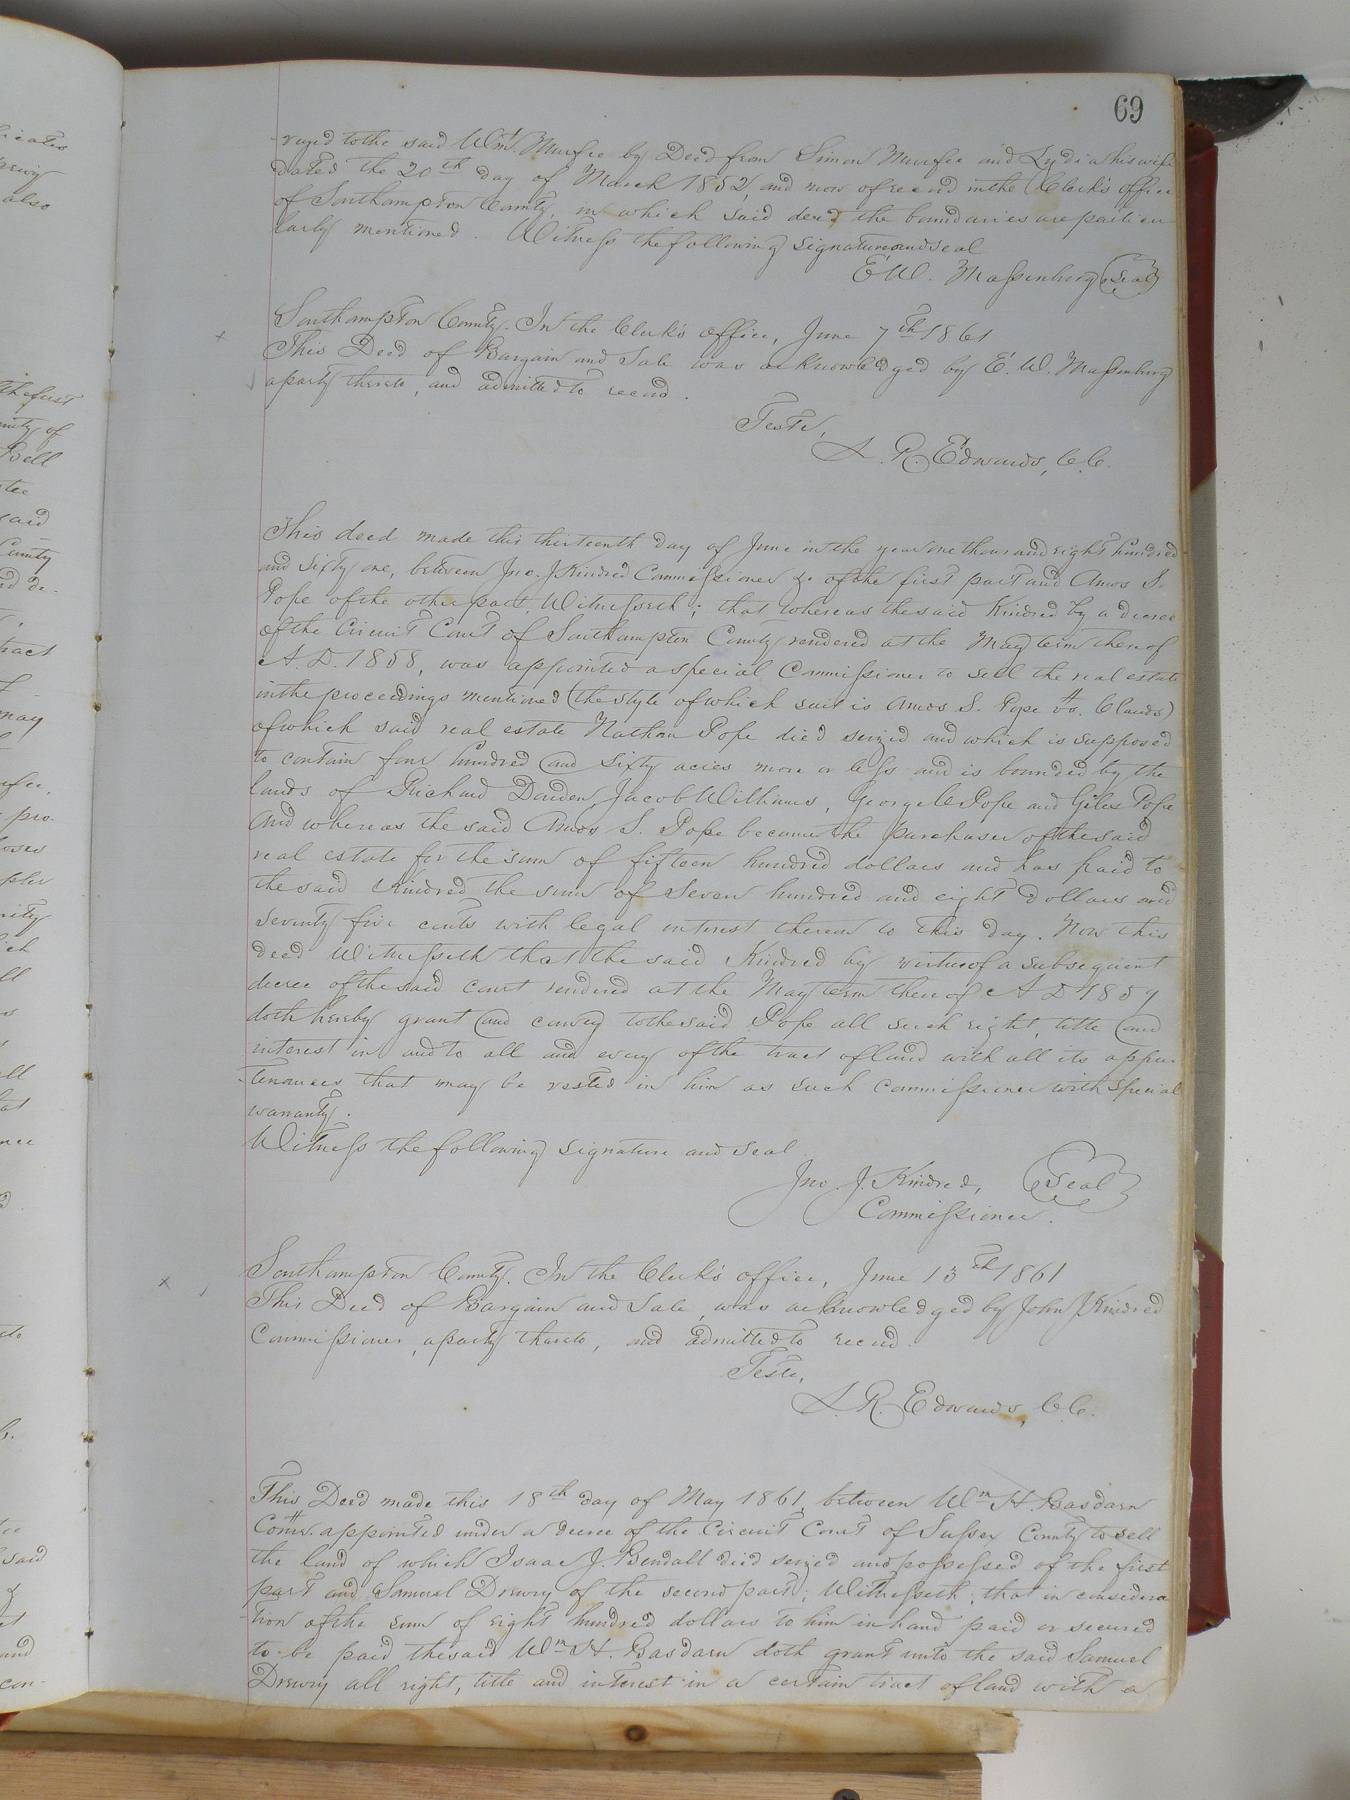 69
veyed to the said Wm. Murfee by Deed from Simon Murfee and Lydia his wife
dated the 20th day of March 1852, and now of record in the Clerk's office
of Southampton County, in which said deed the boundaries are particu
larly mentioned. Witness the following signature and seal
E. W. Massenburg (Seal)
Southampton County. In the Clerk's office, June 7th 1861
This Deed of Bargain and Sale was acknowledged by E. W. Massenburg
a party thereto, and admitted to record.
Teste,
L. R. Edwards, C.C.
This deed made this thirteenth day of June in the year one thousand eight hundred
and sixty one, between Jno. J. Kindred Commissioner &c of the first part and Amos S.
Pope of the other part, Witnesseth; that whereas the said Kindred by a decree
of the Circuit Court of Southampton County rendered at the May term thereof
A. D. 1858, was appointed a special Commissioner to sell the real estate
in the proceedings mentioned (the style of which suit is Amos S. Pope vs. Clauds)
of which said real estate Nathan Pope died seized and which is supposed
to contain four hundred and sixty acres more or less and is bounded by the
lands of Richard Darden, Jacob Williams, George Pope and Giles Pope
And whereas the said Amos S. Pope became the purchaser of the said
real estate for the sum of fifteen hundred dollars and has paid to
the said Kindred the sum of Seven hundred and eight dollars and
seventy five cents with legal interest thereon to this day. Now this
deed Witnesseth that the said Kindred by virtue of a subsequent
decree of the said court rendered at the May term thereof A D 1859
doth hereby grant and convey to the said Pope all such right, title and
interest in and to all and every of the tract of land with all its appur
tenances that may be vested in him as such commissioner with special
warranty.
Witness the following signature and seal
Jno. J. Kindred, (Seal)
Commissioner.
Southampton County. In the Clerk's office, June 13th 1861
This Deed of Bargain and Sale, was acknowledged by John J. Kindred
Commissioner, a party thereto, and admitted to record.
Teste,
L. R. Edwards, C.C.
This Deed made this 18th day of May 1861, between Wm H.
Comr. appointed under a decree of the Circuit Court of Sussex County to sell
the land of which Isaac J Bendall died seized and possessed of the first
part and Samuel Drewry of the second part; Witnesseth, that in considera
tion of the sum of eight hundred dollars to him in hand paid or secured
to be paid the said Wm H. doth grant unto the said Samuel
Drewry all right, title and interest in a certain tract of land with a